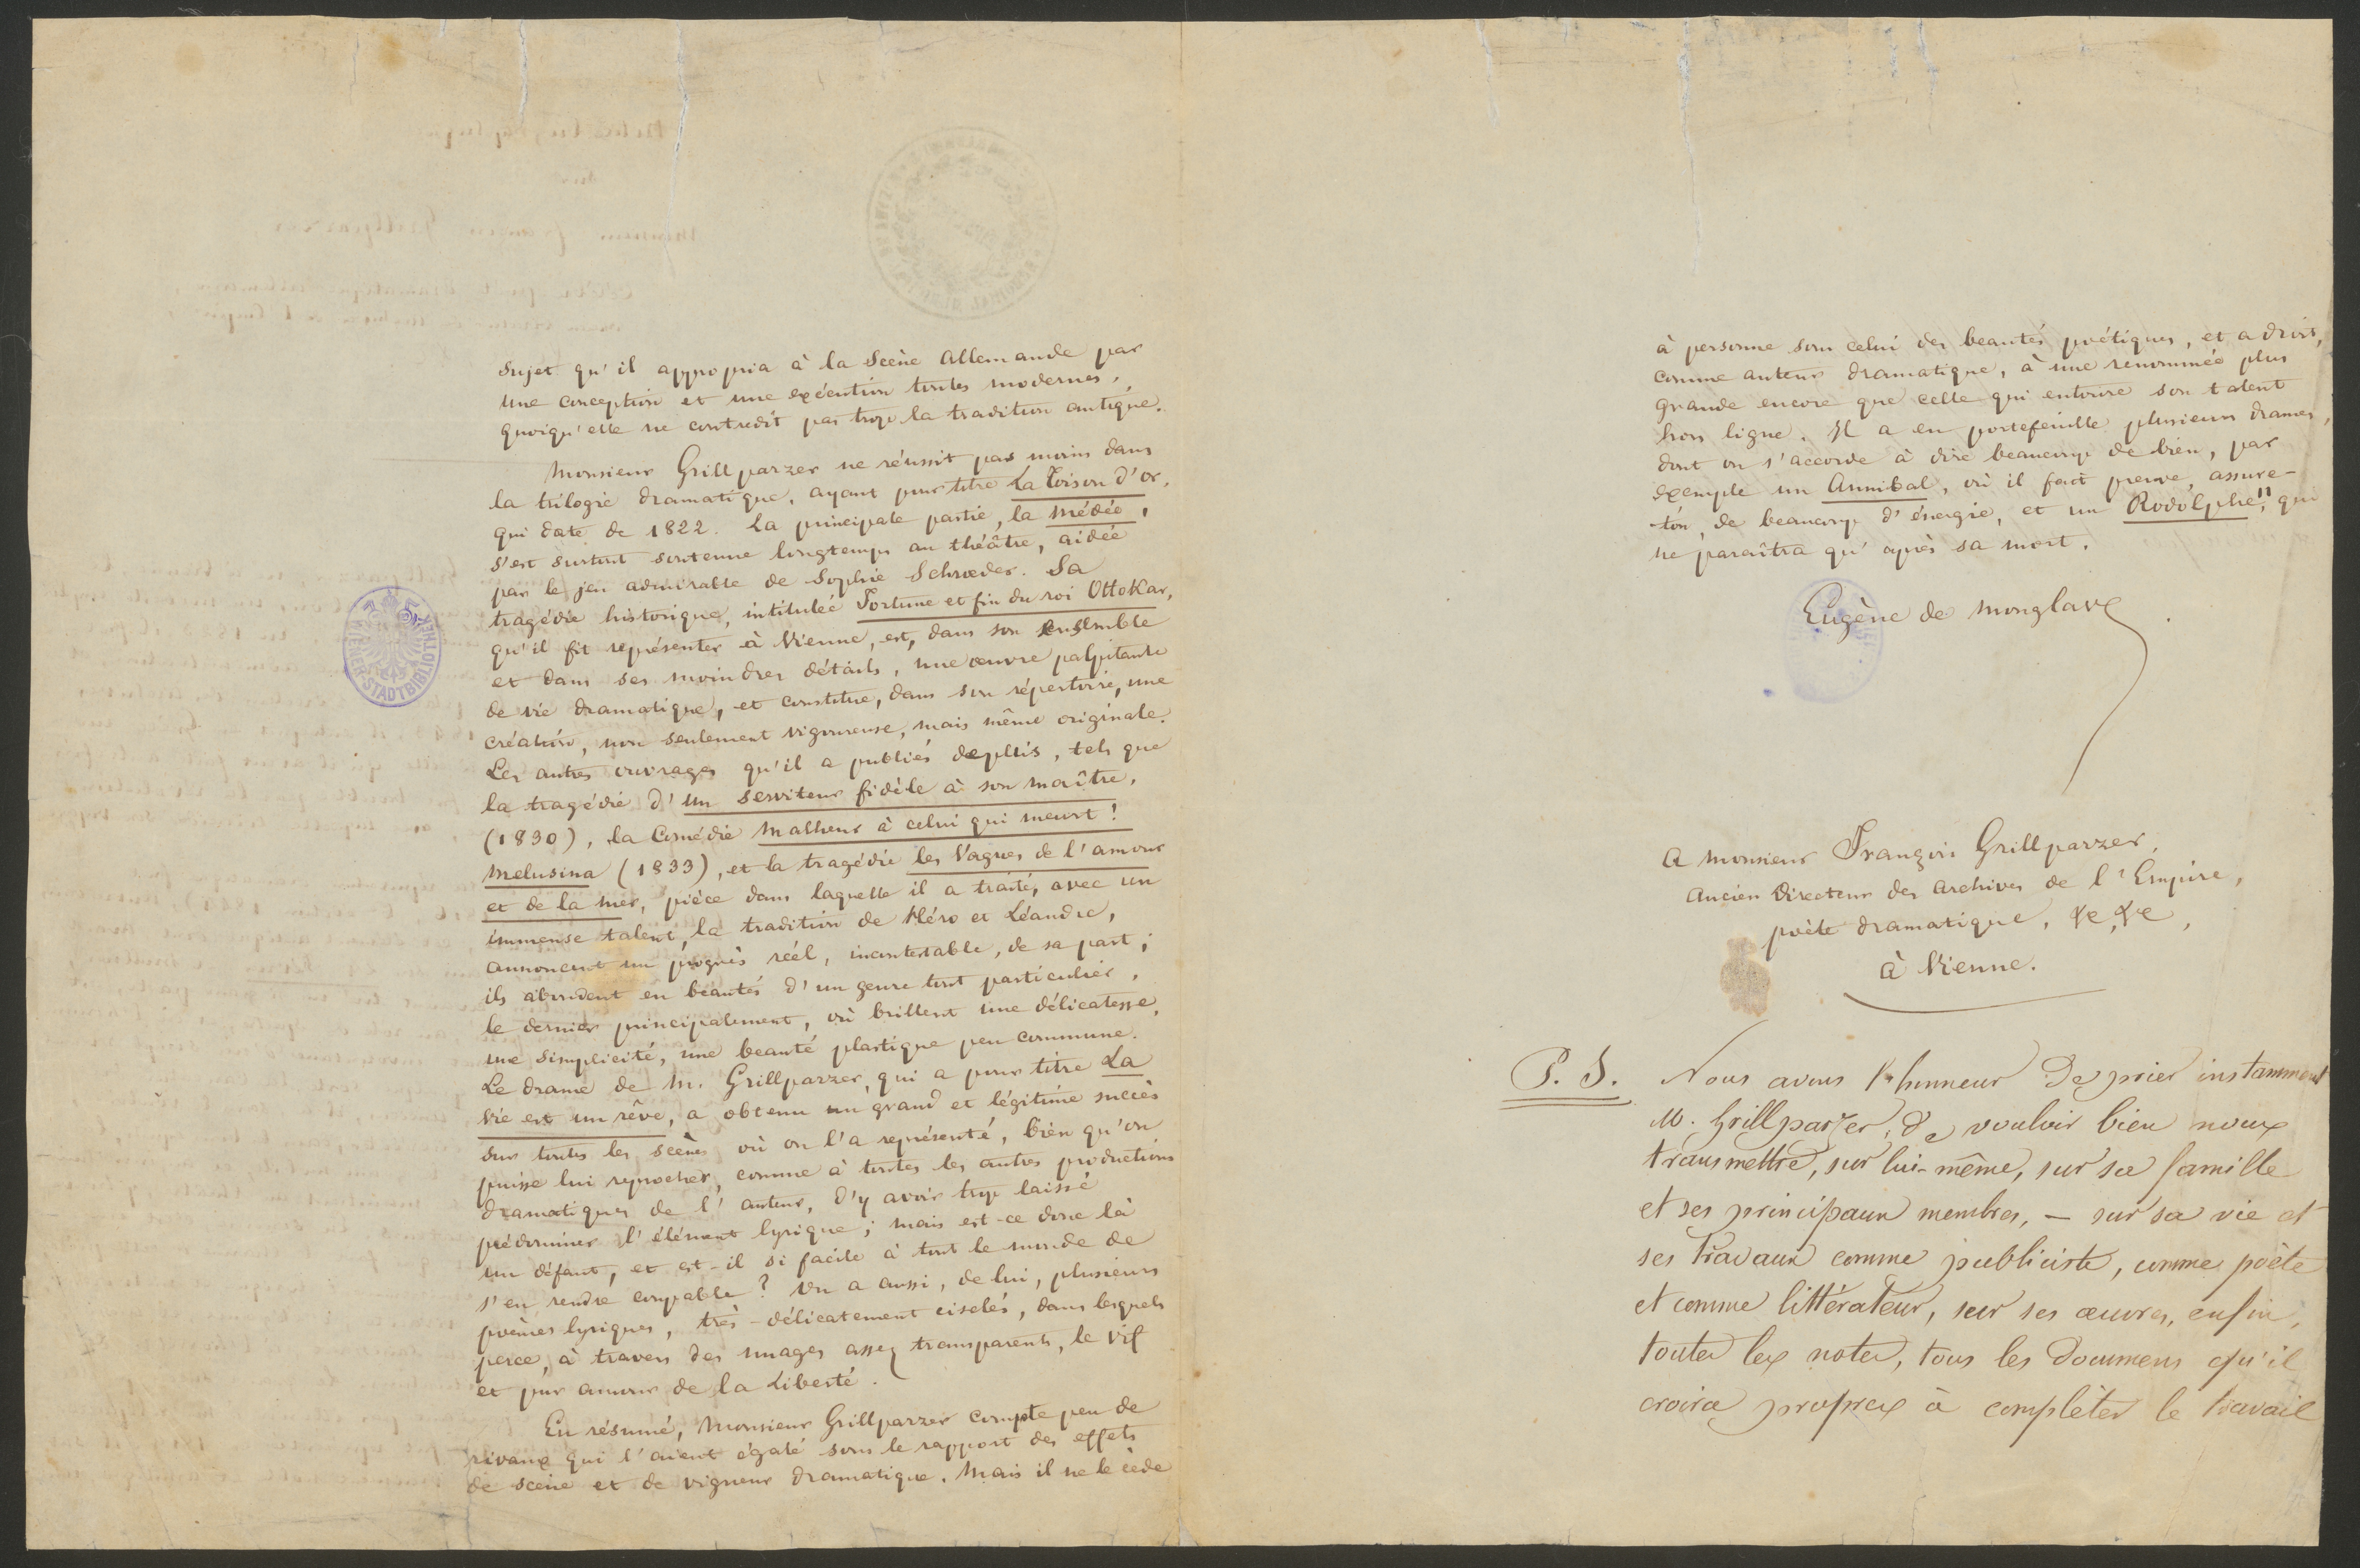 sujet qu'il appropria à la Scène Allemande par
une conception et une exécution toutes modernes,
quoiqu'elle ne contredît pas trop la tradition antique.
Monsieur Grillparzer ne réussit pas moins dans
la trilogie dramatique, ayant pour titre La Toison d'or,
qui date de 1822. La principale partie, la Médée,
s'est surtout soutenue longtemps au théâtre, aidée
par le jeu admirable de Sophie Schroeder. Sa
tragédie historique, intitulée Fortune et fin du roi Ottokar,
qu'il fit représenter à Vienne, est, dans son ensemble
et dans ses moindres détails, une œuvre palpitante
de vie dramatique, et constitue, dans son répertoire, une
création, non seulement vigoureuse, mais même originale.
Les autres ouvrages qu'il a publiés depuis, tels que
la tragédie d'un serviteur fidèle à son maître,
(1830), la Comédie Malheur à celui qui meurt!
Melusina (1833), et la tragédie les Vagues de l'amour
et de la mer, pièce dans laquelle il a traité, avec un
immense talent, la tradition de Héro et Léandre,
annoncent un progrès réel, incontestable, de sa part;
ils abondent en beautés d'un genre tout particulier,
le dernier principalement, où brillent une délicatesse,
une simplicité, une beauté plastique peu commune.
Le drame de M. Grillparzer, qui a pour titre La
Vie est un rêve, a obtenu un grand et légitime succès
sur toutes les scènes où on l'a représenté, bien qu'on
puisse lui reprocher, comme à toutes les autres productions
dramatiques de l'auteur, d'y avoir trop laissé
prédominer l'élément lyrique; mais est-ce donc là
un défaut, et est-il si facile à tout le monde de
s'en rendre coupable? On a aussi, de lui, plusieurs
poèmes lyriques, très-délicatement ciselés, dans lesquels
perce, à travers des nuages assez transparents, le vif
et pur amour de la Liberté.
En résumé, Monsieur Grillparzer compte peu de
rivaux qui l'aient égalé sous le rapport des effets
de scène et de vigueur dramatique. Mais il ne le cède
WIENER STADTBIBLIOTHEK
à personne sous celui des beautés poétiques, et a droit,
comme auteur dramatique, à une renommée plus
grande encore que celle qui entoure son talent
hors ligne. Il a en portefeuille plusieurs drames,
dont on s'accorde à dire beaucoup de bien, par
exemple un Annibal, où il fait preuve, assure-
t'on, de beaucoup d'énergie, et un Rodolphe II, qui
ne paraîtra qu'après sa mort.
Eugène de Monglave
A Monsieur François Grillparzer,
Ancien Directeur des Archives de l'Empire,
poète dramatique, &c, &c,
à Vienne.
P. S. Nous avons l'honneur de prier instamment
M. Grillparzer, de vouloir bien nous
transmettre, sur lui-même, sur sa famille
et ses principaux membres, — sur sa vie et
ses travaux comme publiciste, comme poète
et comme littérateur, sur ses œuvres, enfin,
toutes les notes, tous les documens qu'il
croira propres à compléter le travail